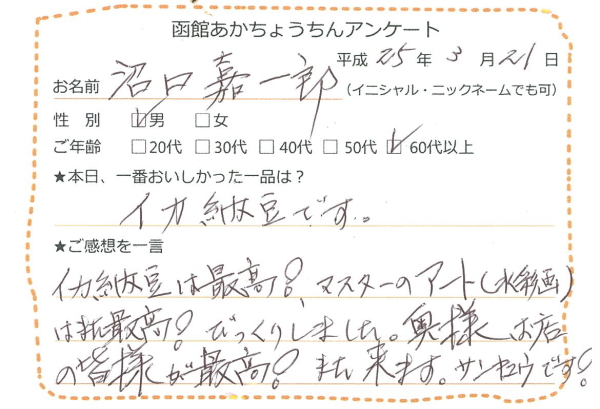 函館あかちょうちんアンケート
平成 25 年 3 月 21 日
お名前 沼口 嘉一郎 (イニシャル・ニックネームでも可)
性 別 ☑男 □女
ご年齢 □20代 □30代 □40代 □50代 ☑60代以上
★本日、一番おいしかった一品は?
イカ納豆です。
★ご感想を一言
イカ納豆は最高!マスターのアート(水彩画)
はまた最高!びっくりしました。奥様 お店
の皆様が最高!また来ます。サンキュウです!